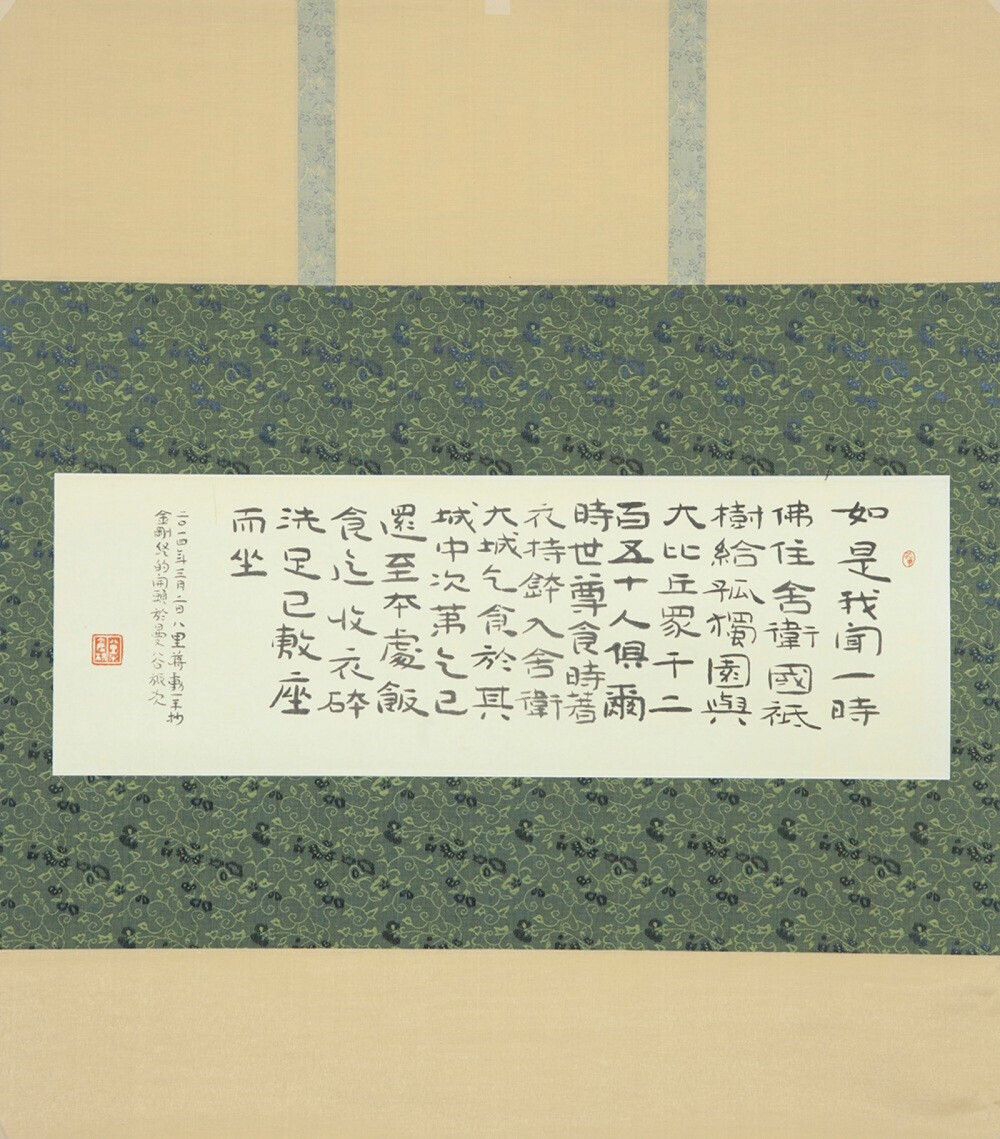 如是我聞一時
佛住舍衛國祇
樹給孤獨園與
大比丘眾千二
百五十人俱爾
時世尊食時著
衣持鉢入舍衛
大城乞食於其
城中次第乞已
還至本處飯
食訖收衣砵
洗足已敷座
而坐
二〇一四年三月二日八里蔣勳手抄
金剛經的開頭於曼谷旅次